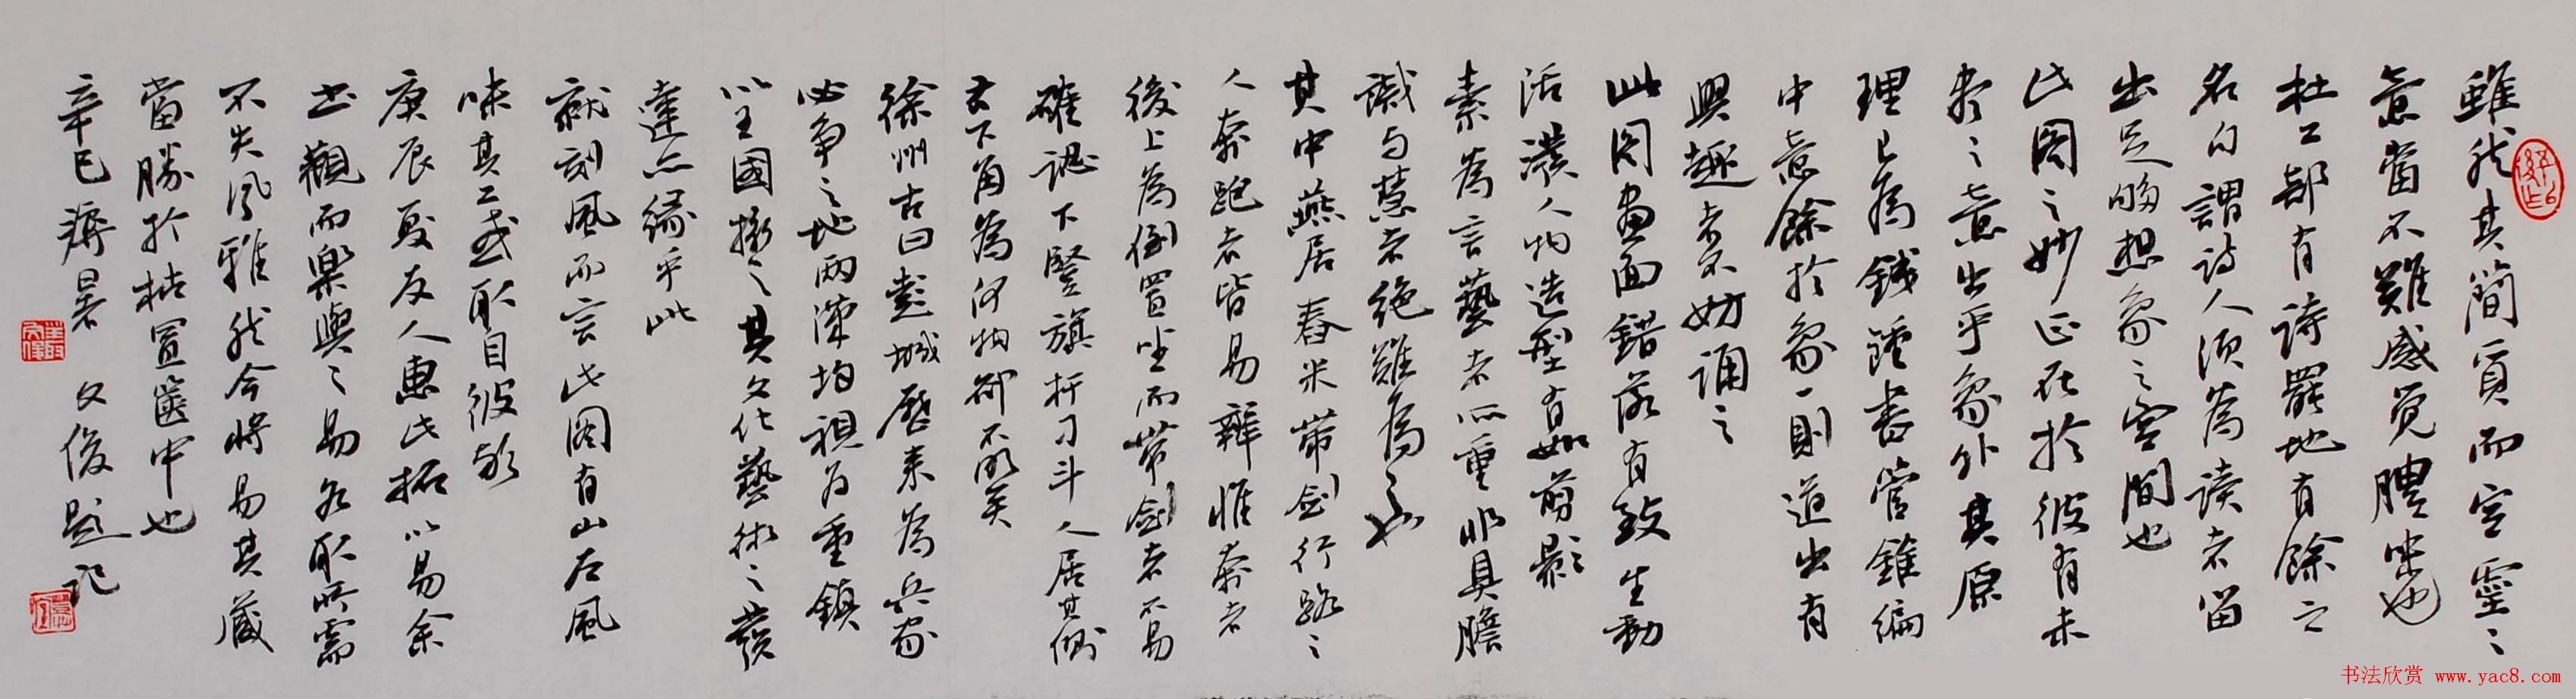 雖然其簡質而空靈之
意當不難感覺體味也
杜工部有詩罷地有餘之
名句謂詩人須為讀者留
出足夠想象之空間也
此圖之妙正在於彼有未
盡之意出乎象外其原
理已為錢鍾書管錐編
中意餘於象一則道出有
興趣者不妨誦之
此圖畫面錯落有致生動
活潑人物造型有如剪影
素為言藝者所重非具膽
識與慧者絕難為之也
其中燕居舂米帶劍行路之
人奔跑者皆易辨惟奔者
後上為倒置坐而帶劍者不易
確認下豎旗杆刁斗人居其側
右下角為何物卻不明矣
徐州古曰彭城歷來為兵家
必爭之地兩漢均視為重鎮
以王國撫之其文化藝術之發
達亦緣乎此
就刻風而言此圖有山左風
味其工或取自彼歟
庚辰夏友人惠此拓以易余
書觀而樂與之易各取所需
不失風雅然今將易其藏
當勝於枯置篋中也
辛巳溽暑 文俊題記
书法欣赏 www.yac8.com